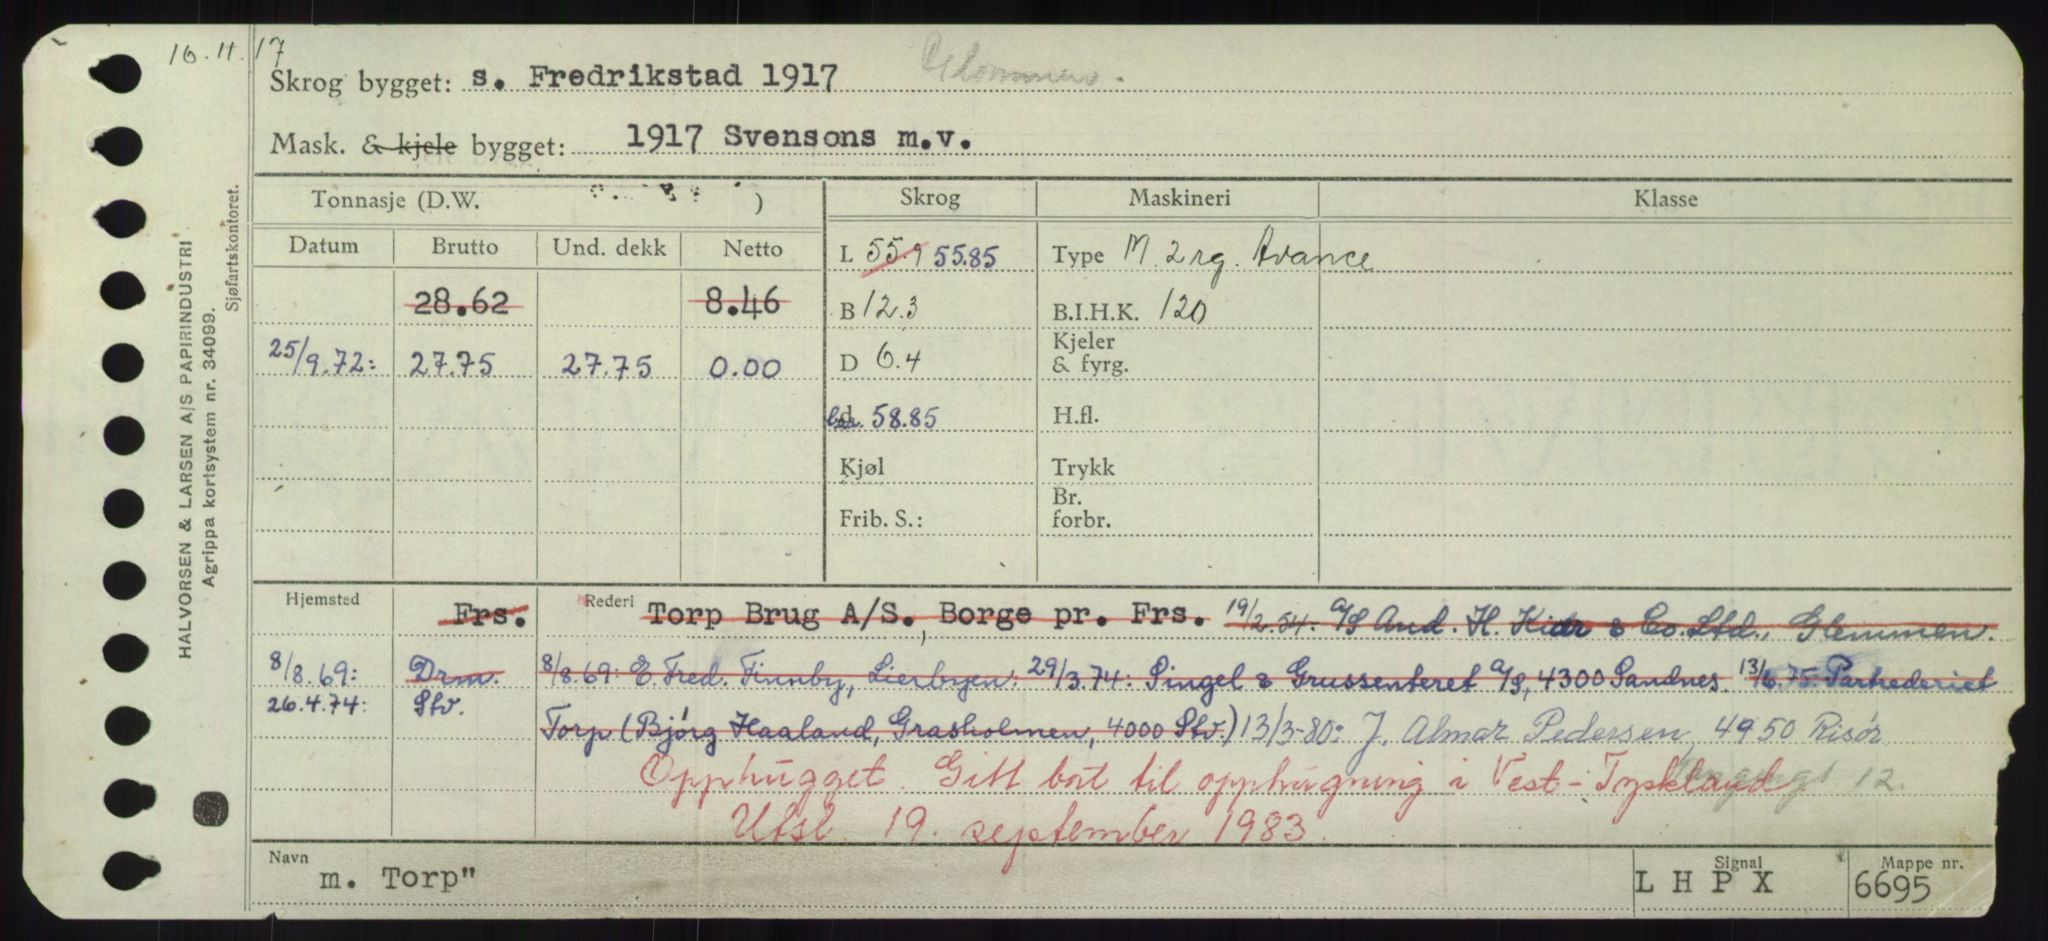 16.11.17
Skrog bygget: s. Fredrikstad 1917
Mask. & kjele bygget: 1917 Svensons m.v.
HALVORSEN & LARSEN A/S PAPIRINDUSTRI
Agrippa kortsystem nr. 34099.
Sjøfartskontoret.
Tonnasje (D.W. ) Skrog Maskineri Klasse
Datum Brutto Und. dekk Netto
L 55.9 55.85 Type M. 2 rg. Avance
28.62 8.46 B 12.3 B.I.H.K. 120
25/9.72: 27.75 27.75 0.00 D 6.4 Kjeler & fyrg.
d 58.85 H.fl.
Kjøl Trykk
Frib. S.: Br. forbr.
Hjemsted Frs. Rederi Torp Brug A/S, Borge pr. Frs. 19/2.54: A/S And. H. Kiær & Co. Ltd., Glemmen.
8/8.69: Drm. 8/8.69: E. Fred. Finnby, Lierbyen. 29/3.74: Singel & Grussenteret A/S, 4300 Sandnes. 13/6.75: Partrederiet
26.4.74: Stv. Torp (Bjørg Haaland, Grasholmen, 4000 Stv.) 13/3-80: J. Almar Pedersen, 4950 Risør
Opphugget. Gitt bort til opphugning i Vest-Tyskland 12.
Utsl. 19. september 1983.
Navn m. Torp" Signal L H P X Mappe nr. 6695